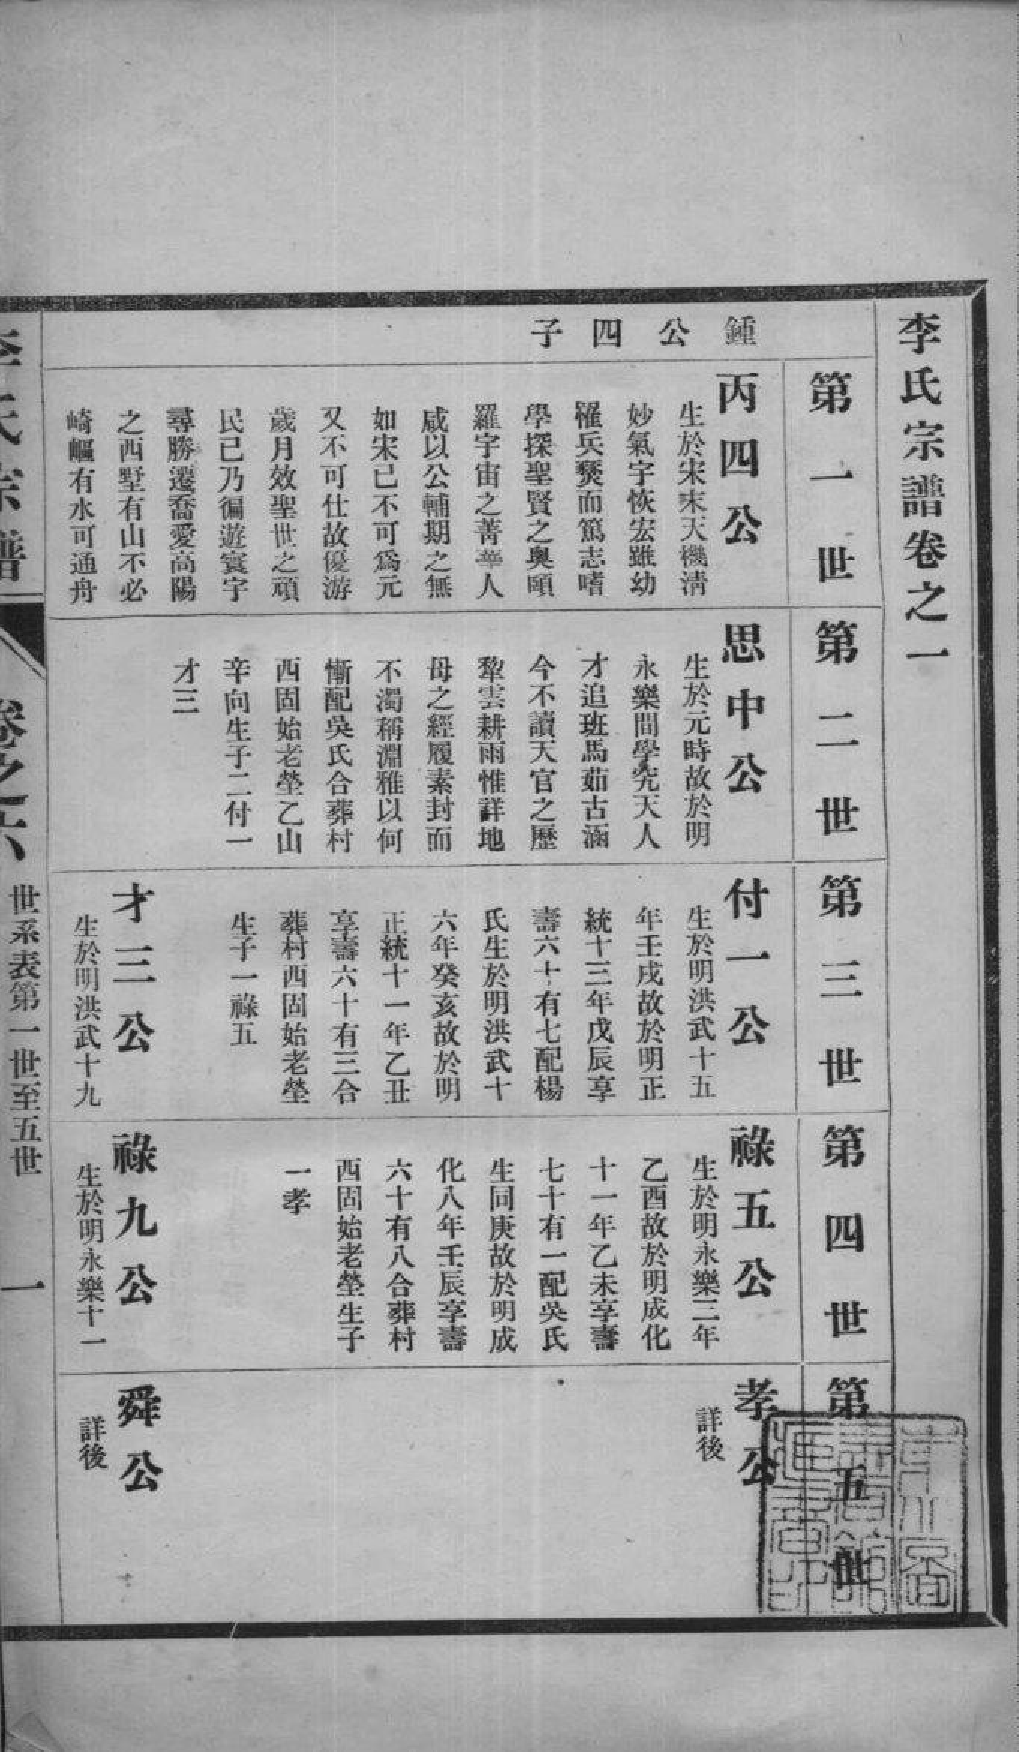 李氏宗譜卷之一
第一世
鍾公四子
丙四公
生於宋末天機清
妙氣宇恢宏雖幼
罹兵燹而篤志嗜
學探聖賢之奥頤
羅宇宙之菁華人
咸以公輔期之無
如宋已不可爲元
又不可仕故優游
歲月效聖世之頑
民已乃徧遊寰宇
尋勝遷喬愛高陽
之西墅有山不必
崎嶇有水可通舟
第二世
思中公
生於元時故於明
永樂間學究天人
才追班馬茹古涵
今不讀天官之歷
犂雲耕雨惟詳地
母之經履素封而
不濁稱淵雅以何
慚配吳氏合葬村
西固始老塋乙山
辛向生子二付一
才三
第三世
付一公
生於明洪武十五
年壬戌故於明正
統十三年戊辰享
壽六十有七配楊
氏生於明洪武十
六年癸亥故於明
正統十一年乙丑
享壽六十有三合
葬村西固始老塋
生子一祿五
才三公
生於明洪武十九
第四世
祿五公
生於明永樂三年
乙酉故於明成化
十一年乙未享壽
七十有一配吳氏
生同庚故於明成
化八年壬辰享壽
六十有八合葬村
西固始老塋生子
一孝
祿九公
生於明永樂十一
第五世
孝公
詳後
舜公
詳後
李氏宗譜
卷之六
世系表第一世至五世
一